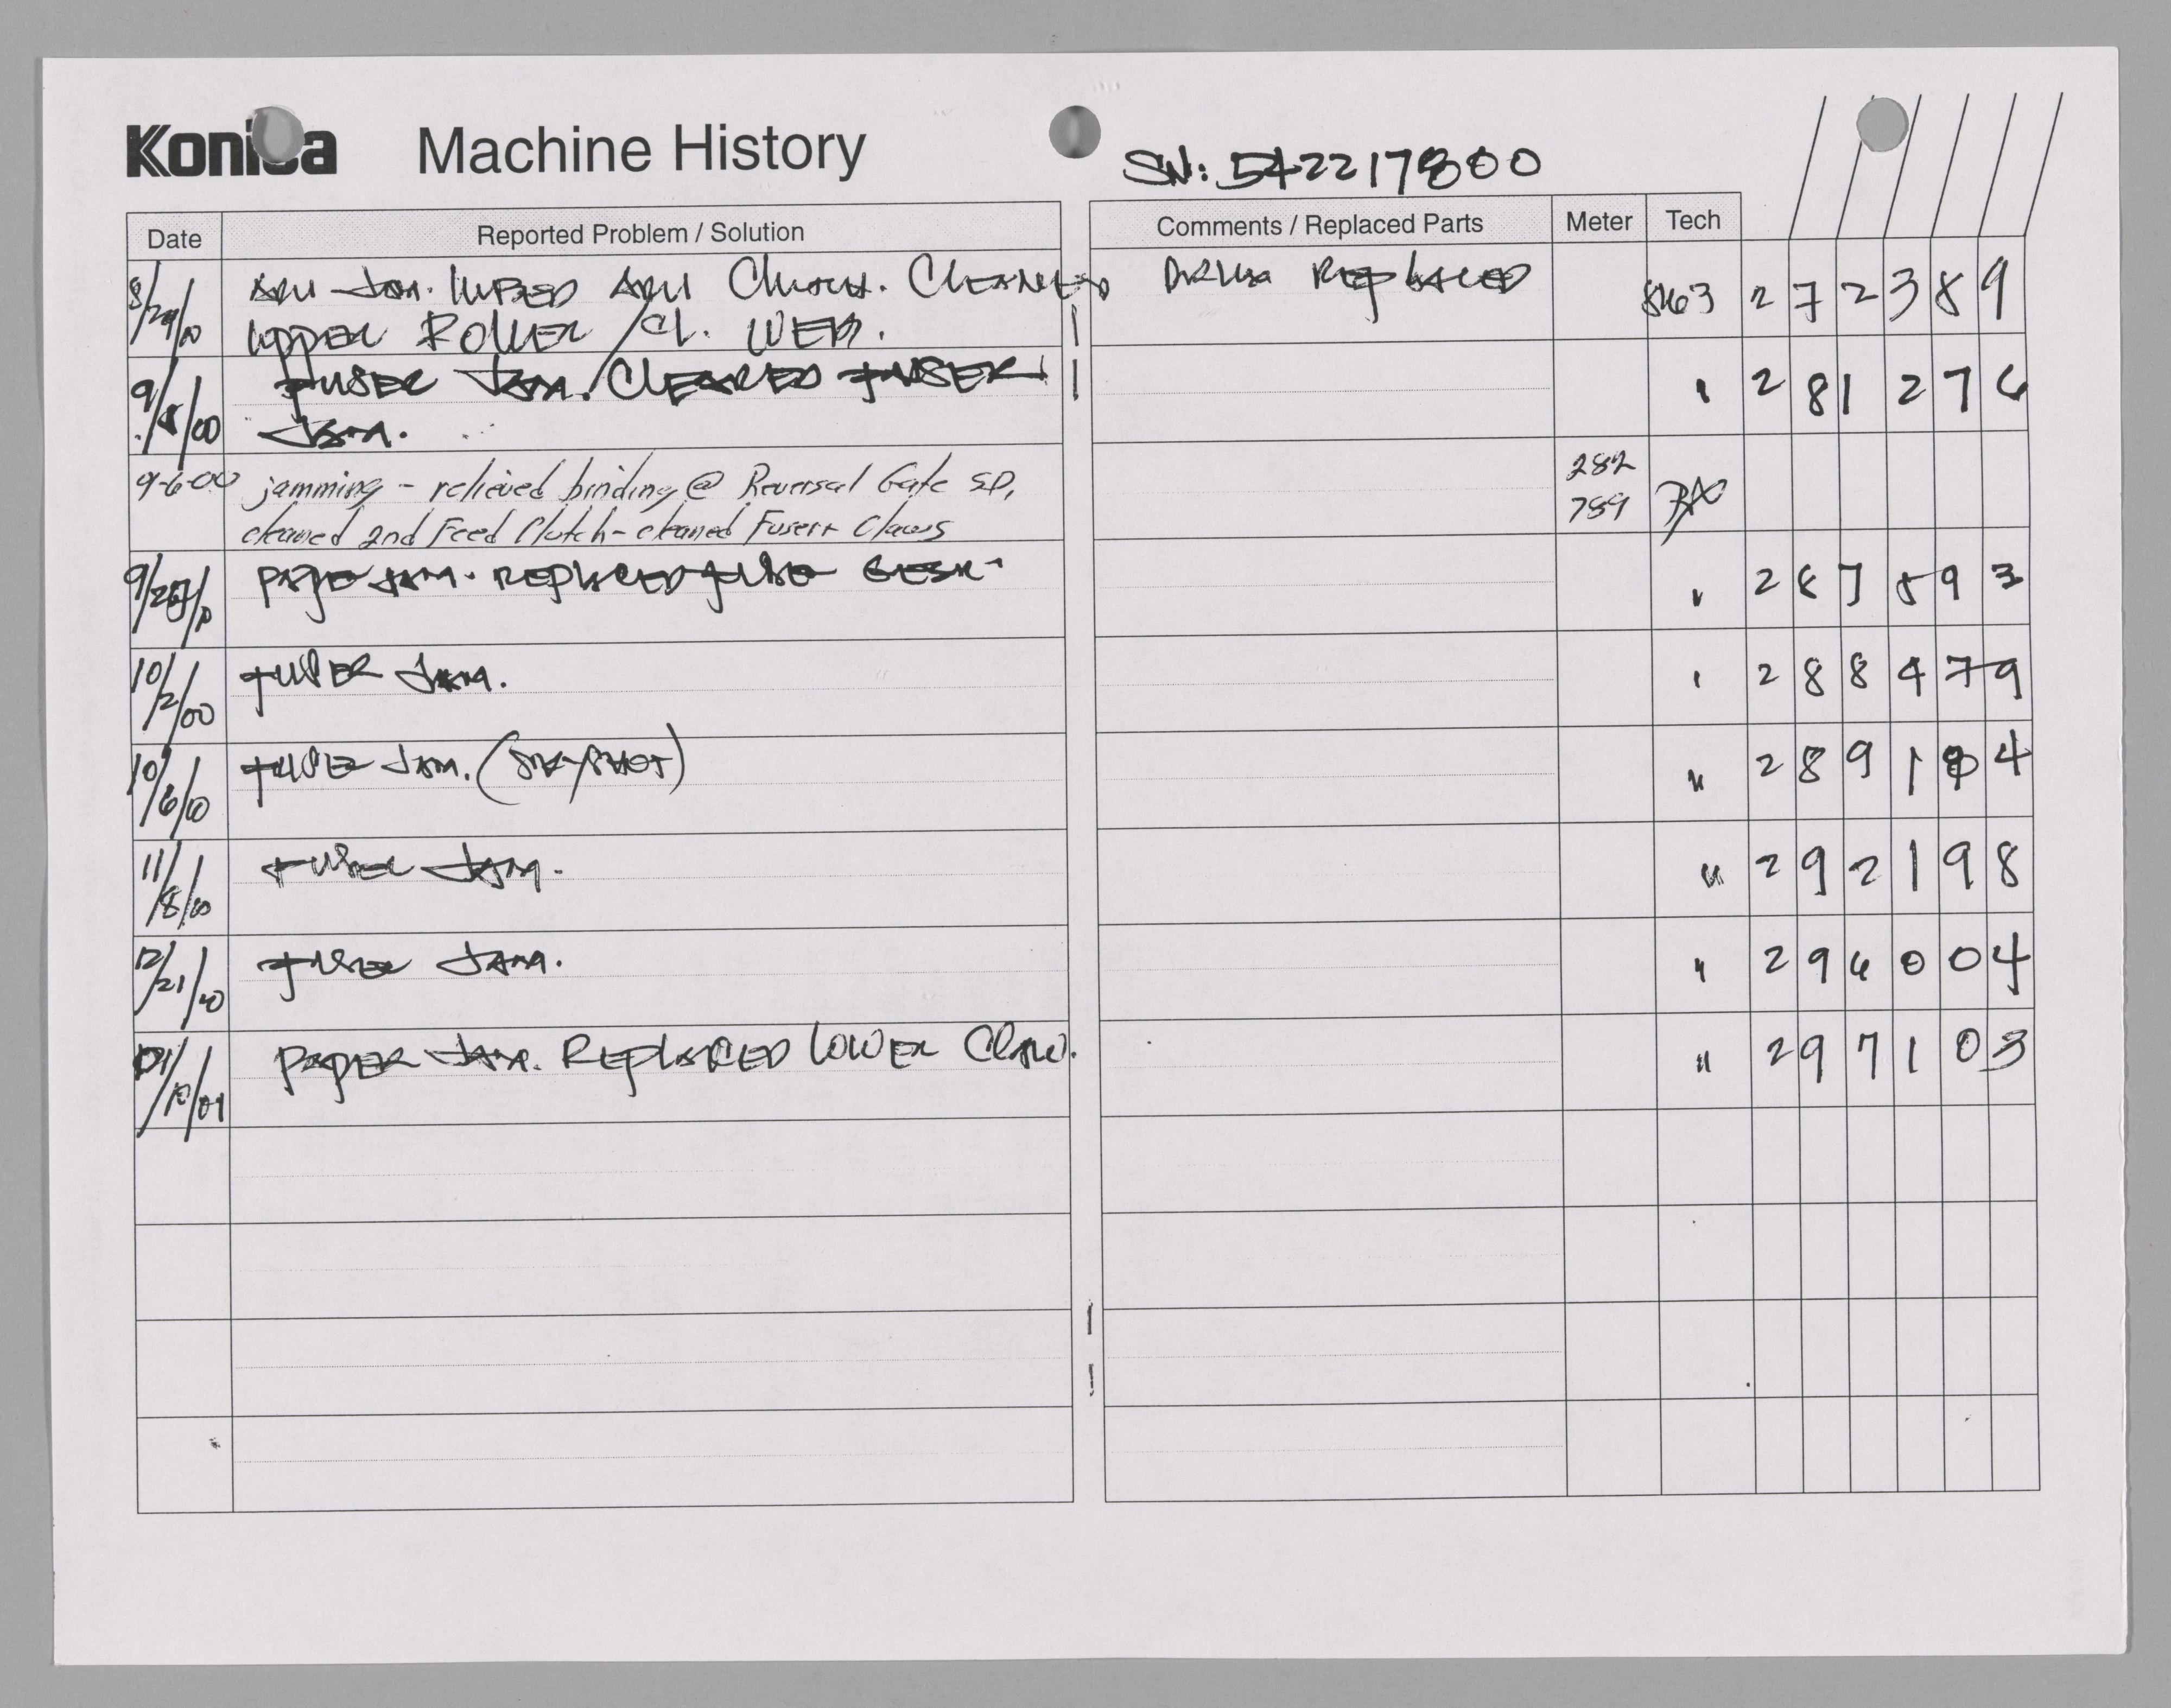 Konica Machine History
SN: 542217800
Date Reported Problem / Solution Comments / Replaced Parts Meter Tech
8/29/0 ADU Jam. Lubed ADU Clutch. Cleaned Drum Replaced 8163 2 7 2 3 8 9
Upper Roller / Cl. Web.
9/5/00 Fuser Jam. Cleared Fuser 2 8 1 2 7 6
Jam.
9-6-00 jamming - relieved binding @ Reversal Gate SD, 282
cleaned 2nd Feed Clutch - cleaned Fuser + Claws 789
Paper Jam. Replaced Fuse Gear 2 8 7 8 9 3
10/2/00 Fuser Jam. " 2 8 8 4 7 9
10/6/00 Fuser Jam. (Snapshot) " 2 8 9 1 4
11/8/00 Fuser Jam. " 2 9 2 1 9 8
12/21/00 Fuser Jam. " 2 9 6 0 0 4
01/10/01 Paper Jam. Replaced Lower Claw. " 2 9 7 1 0 3